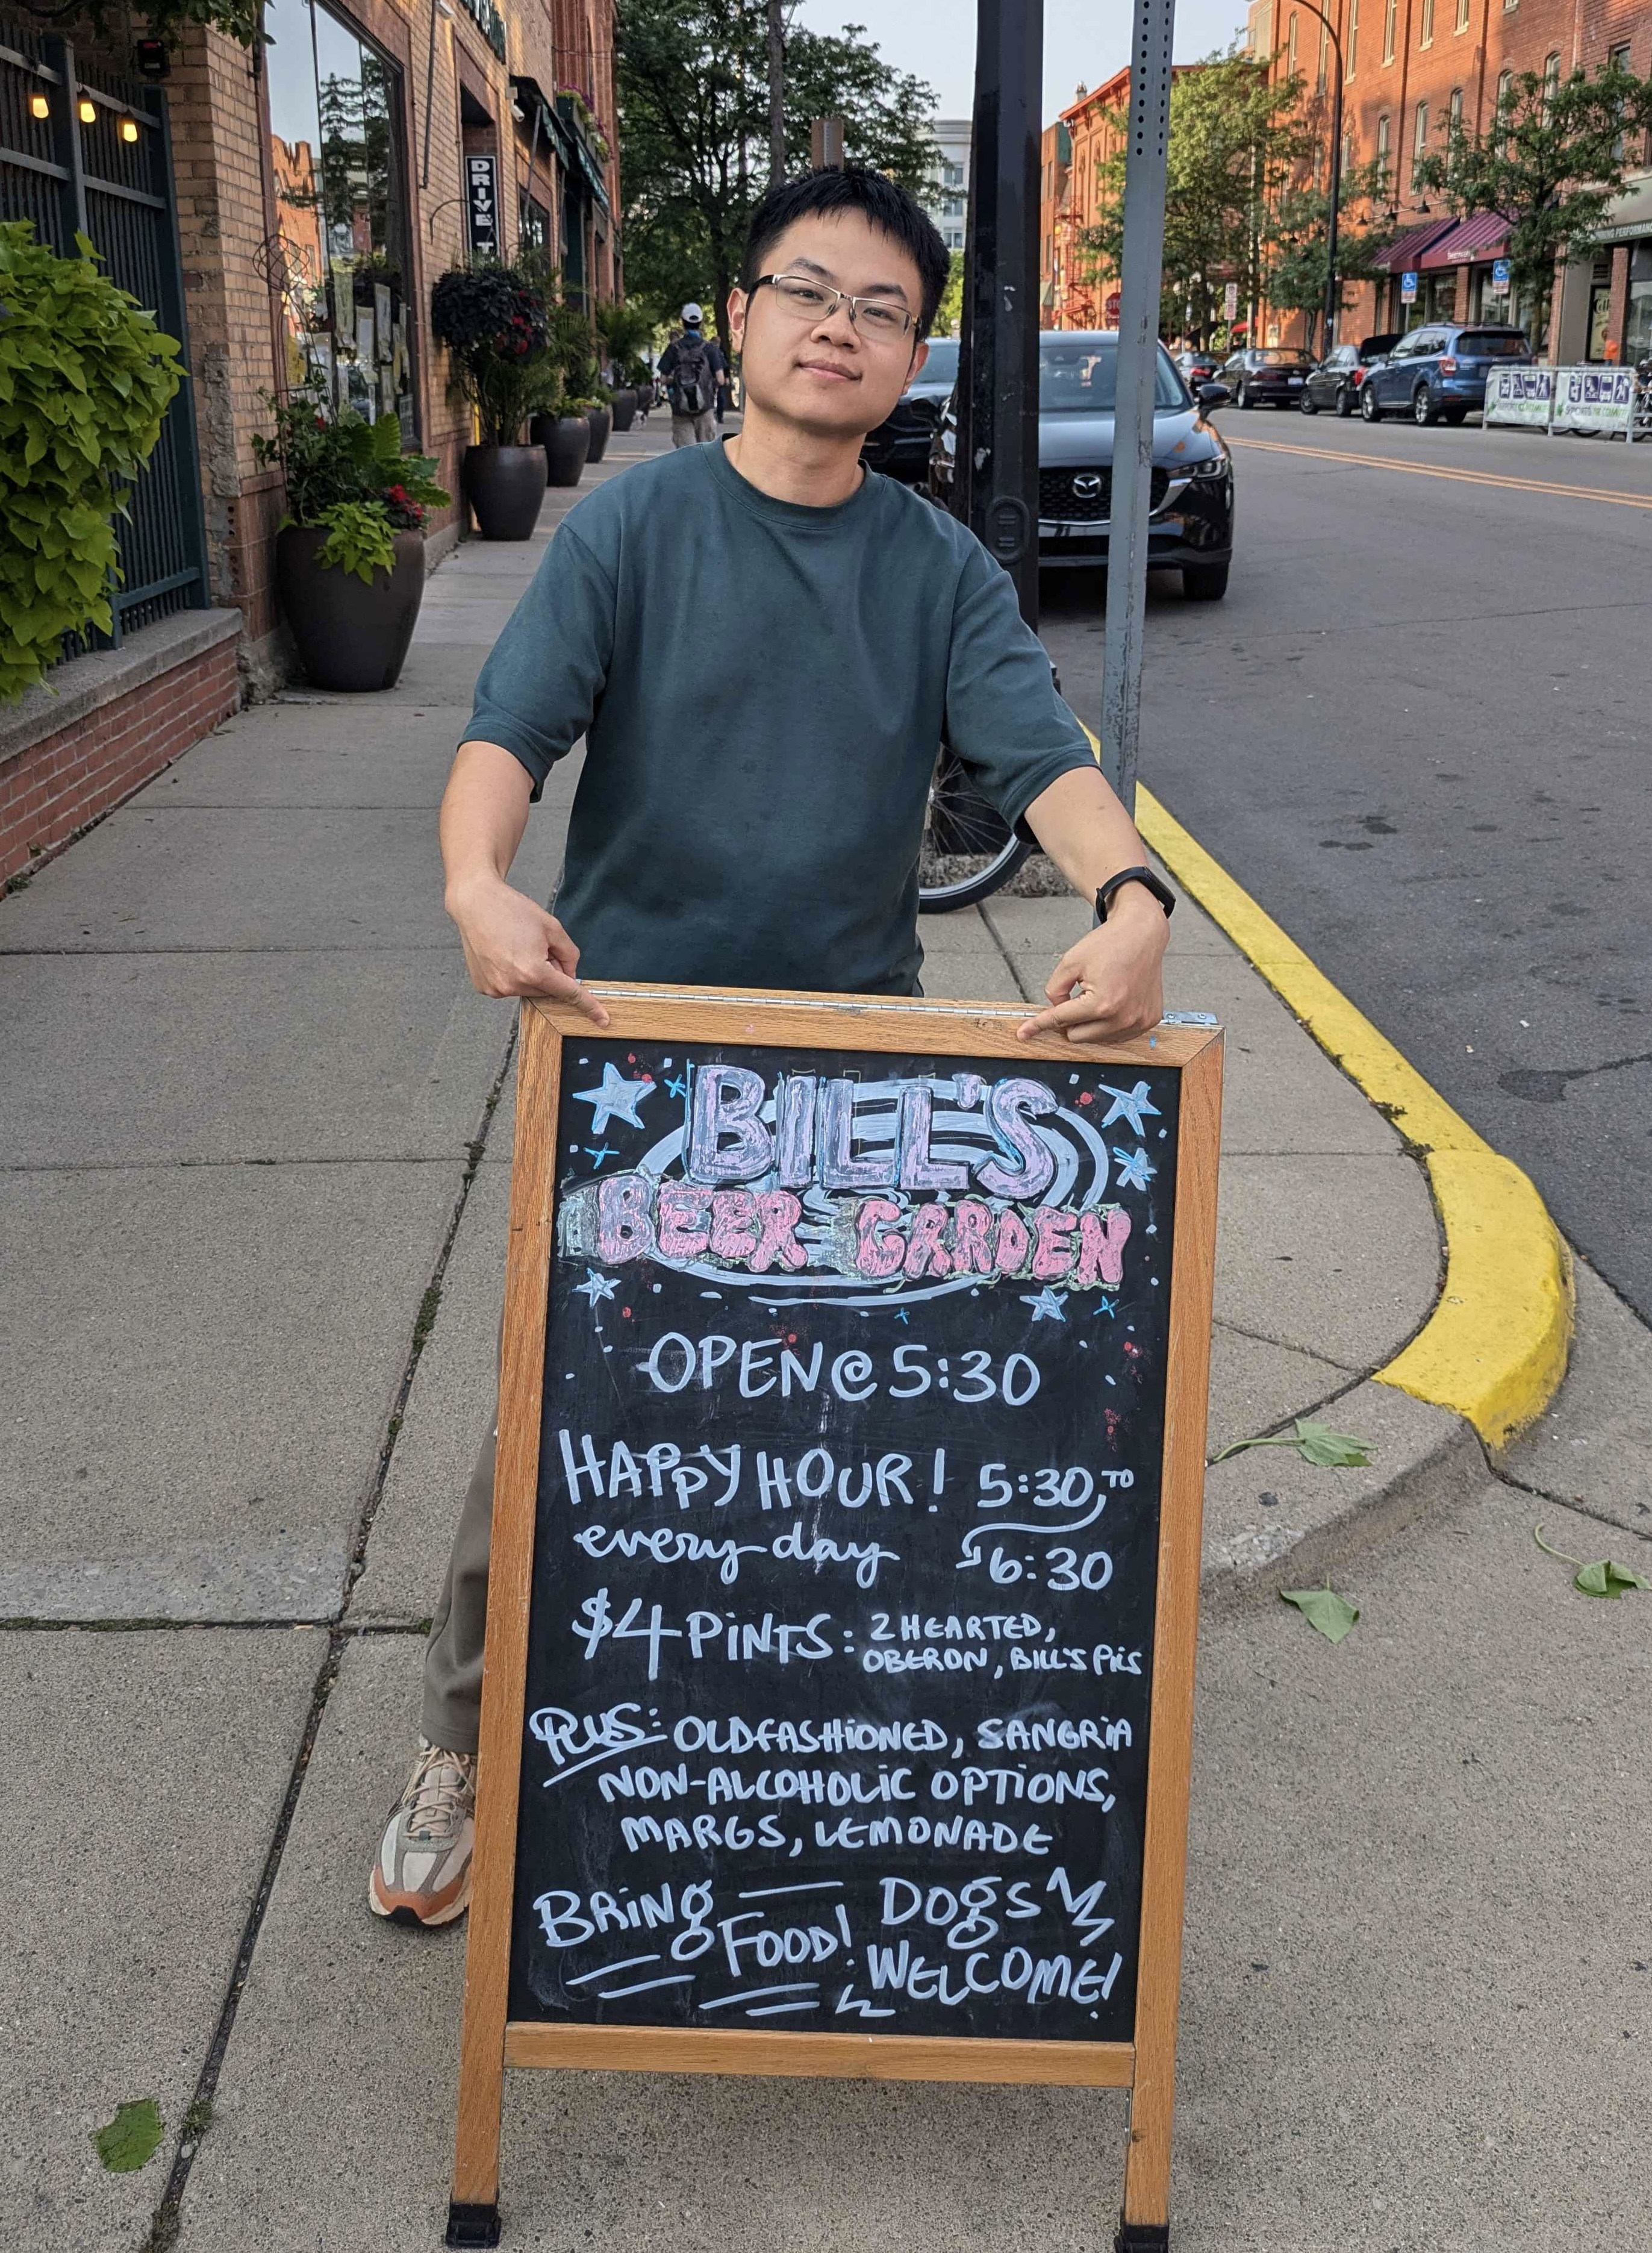 DRIVE T
BILL'S
BEER GARDEN
OPEN @ 5:30
HAPPY HOUR! 5:30 TO
every day 6:30
$4 PINTS: 2 HEARTED,
OBERON, BILL'S PILS
PLUS: OLD FASHIONED, SANGRIA
NON-ALCOHOLIC OPTIONS,
MARGS, LEMONADE
BRING FOOD! DOGS
WELCOME!